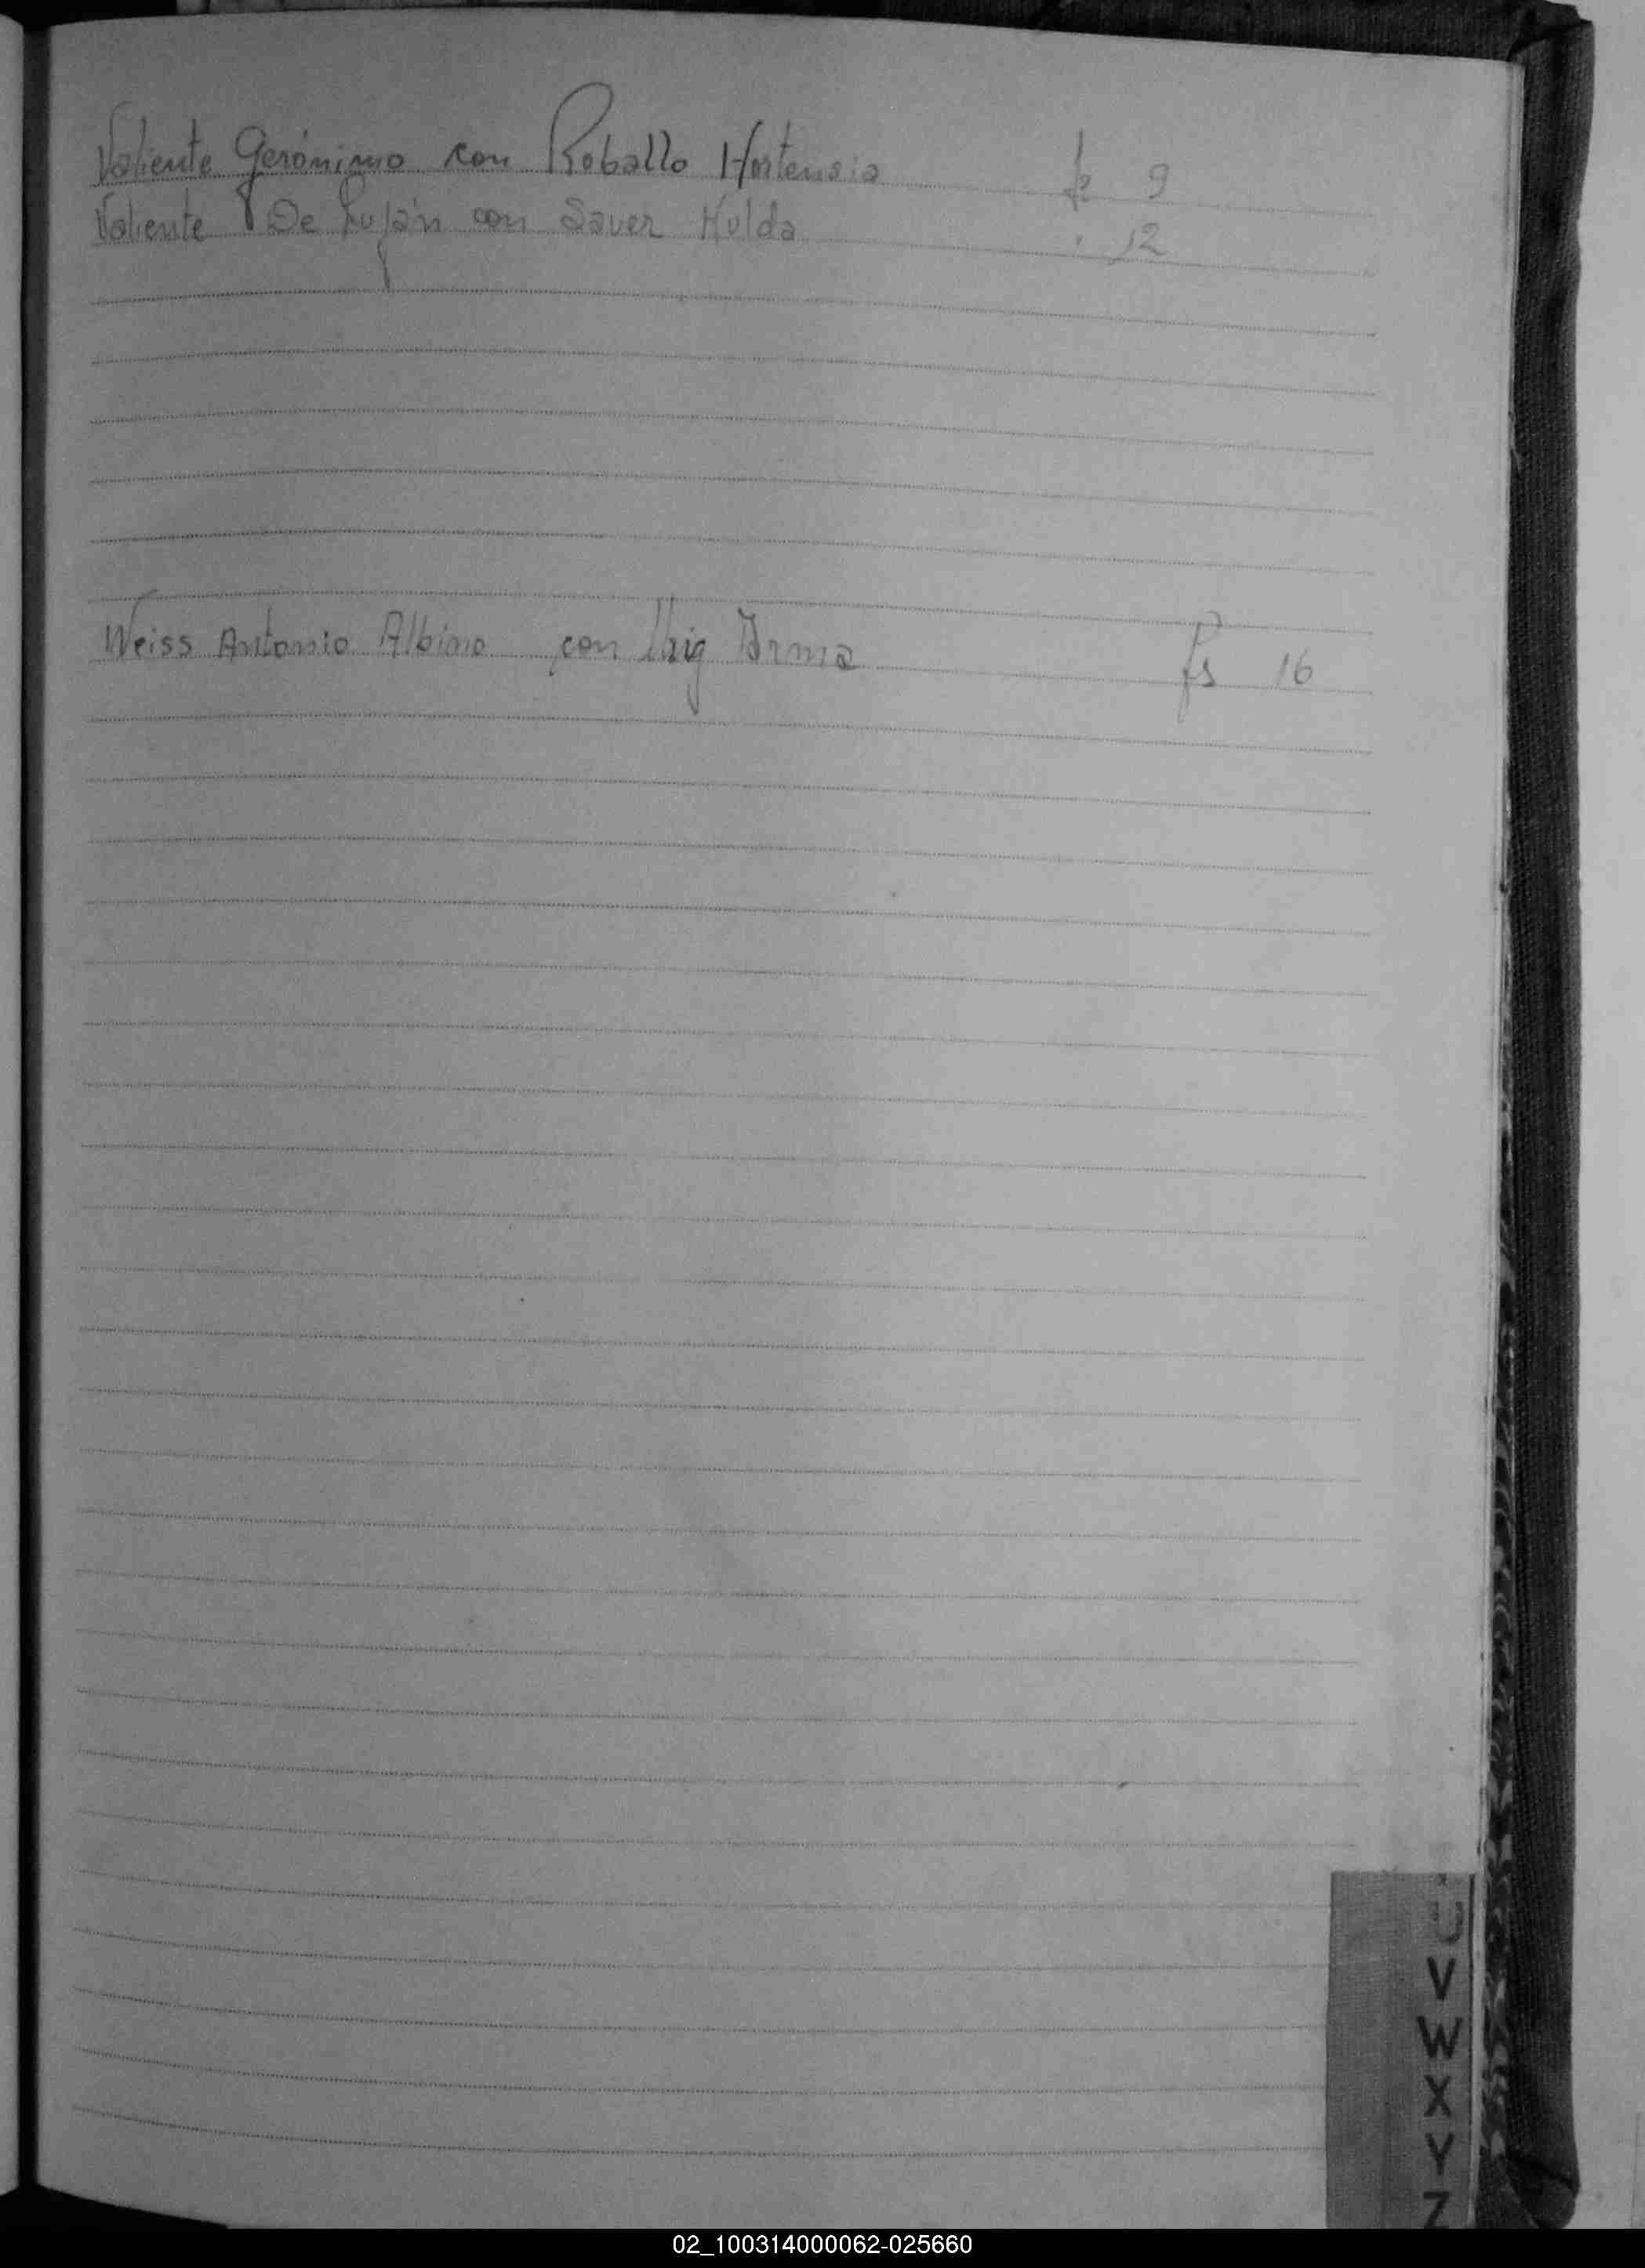 Valiente Gerónimo con Roballo Hortensia fs 9
Valiente De Luján con Sauer Hulda " 12
Weiss Antonio Albino con Irma fs 16
U
V
W
X
Y
Z
02_100314000062-025660